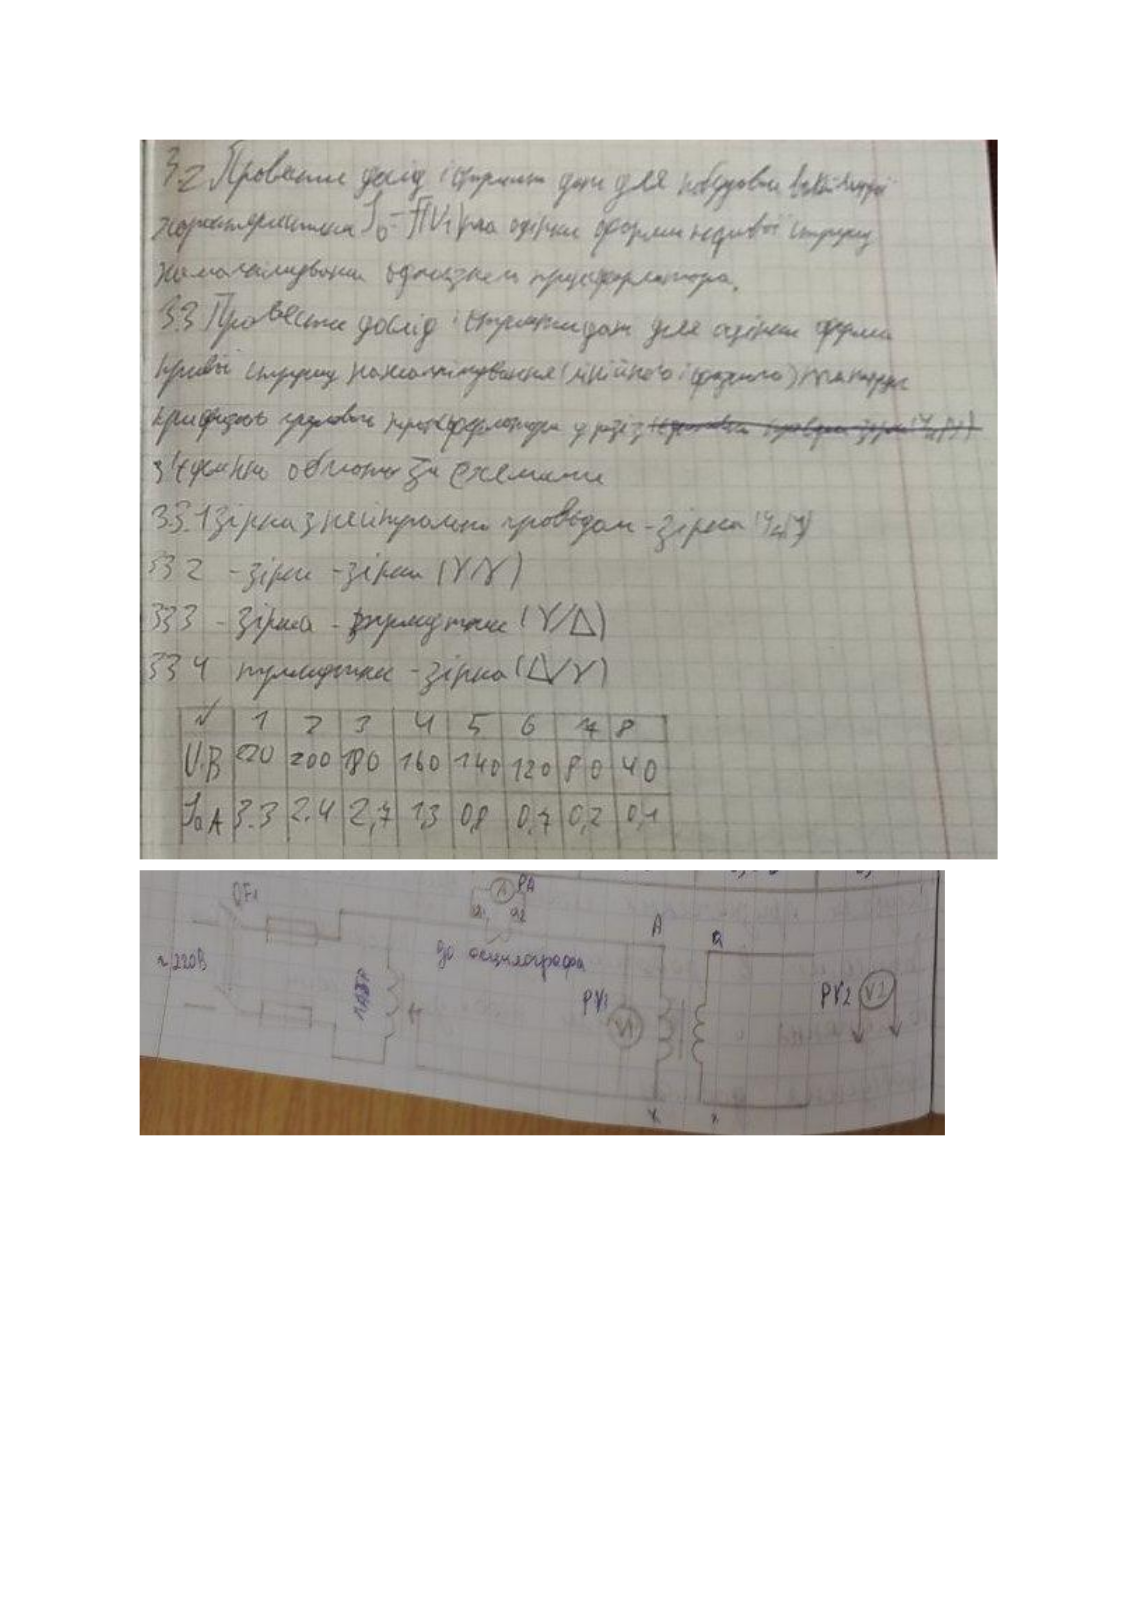 3.2 Провести дослід і отримати дані для побудови
характеристики I₀=f(U₁) та оцінки форми кривої струму
намагнічування однофазного трансформатора.
3.3 Провести дослід і отримати дані для оцінки форми
кривої струму намагнічування (лінійного і фазного)
трифазного групового трансформатора у разі
з'єднання обмоток за схемами
3.3.1 зірка з нейтральним проводом - зірка (Yн/Y)
3.3.2 - зірка - зірка (Y/Y)
3.3.3 - зірка - трикутник (Y/Δ)
3.3.4 трикутник - зірка (Δ/Y)
№ 1 2 3 4 5 6 7 8
U.В 220 200 180 160 140 120 80 40
I₀ A 3.3 2.4 2,7 1,3 0,8 0,7 0,2 0,1
QF1
PA
A
a1 a2
A
a
до осцилографа
~220В
ЛАТР
PV1
V1
PV2
V2
X
x